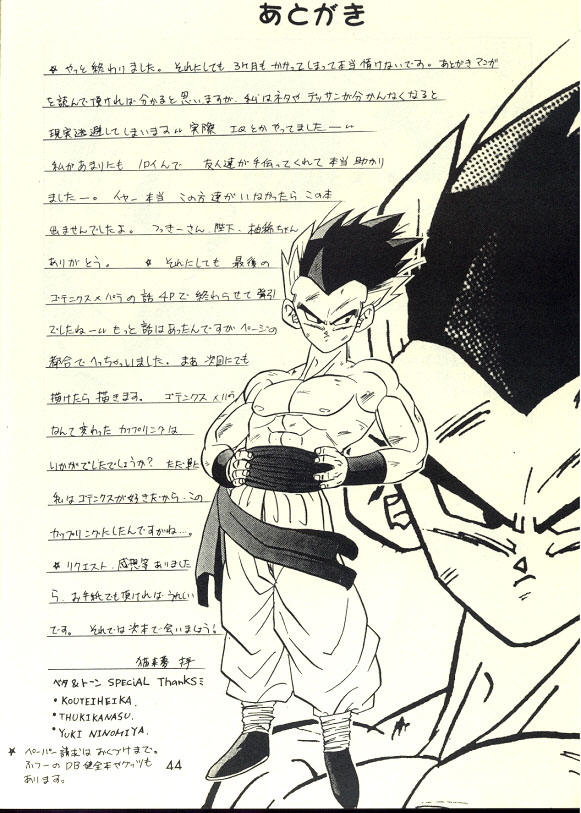 あとがき
☆ やっと終わりました。それにしても3ヶ月もかかってしまって本当情けないです。あとがきマンガ
を読んで頂ければ分かると思いますが、私はネタやデッサンが分かんなくなると
現実逃避してしまいます〃 実際 IQとかやってましたー〃
私があまりにも ノロイんで 友人達が手伝ってくれて本当助かり
ましたー。イヤー本当 この方達がいなかったら この本
出ませんでしたよ。つっきーさん、陛下、柚姫ちゃん
ありがとう。 ☆ それにしても 最後の
ゴテニクス×パラの話 4Pで終わらせて強引
でしたねー〃 もっと話はあったんですがページの
都合でへっちゃいました。まあ 次回にでも
描けたら描きます。 ゴテニクス×パラ
なんて変わったカップリングは
いかがでしたでしょうか? ただ単に
私はゴテニクスが好きだから、この
カップリングにしたんですがね…。
☆ リクエスト、感想等ありました
ら、お手紙でも頂ければうれしい
です。 それでは次本で会いましょう!
ベタ&トーン SPECiAL ThANKSミ
・KOUTEIHEIKA.
・THUKIKANASU.
・YUKI NINOMIYA.
★ ペーパー請求はおくづけまで。
ふつーのDB健全本やグッズも
あります。
44